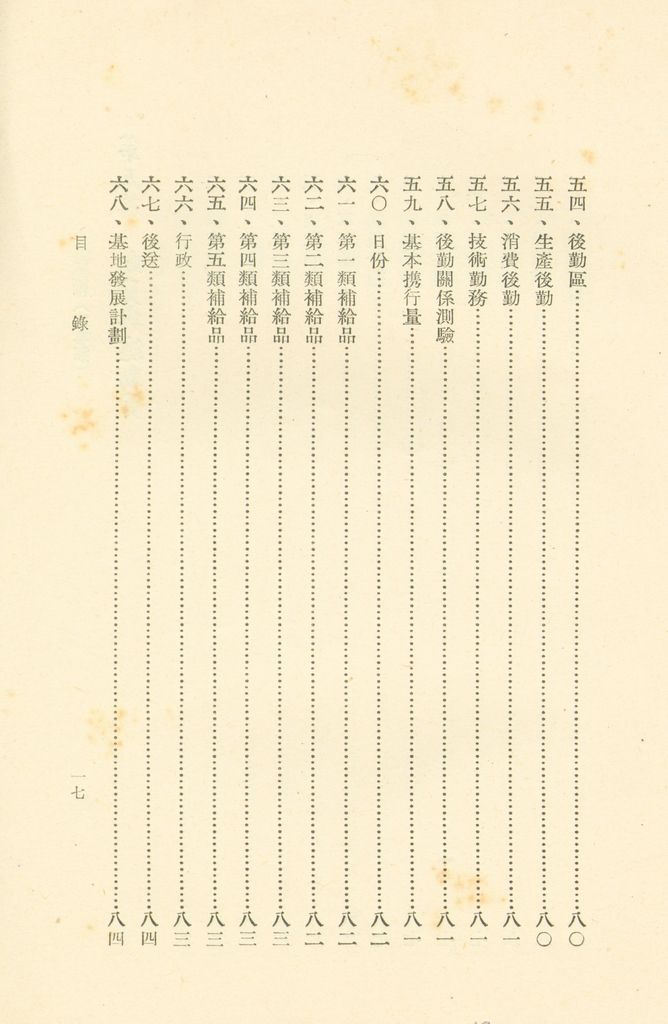 五四、後勤區……八〇
五五、生產後勤……八〇
五六、消費後勤……八一
五七、技術勤務……八一
五八、後勤關係測驗……八一
五九、基本携行量……八一
六〇、日份……八二
六一、第一類補給品……八二
六二、第二類補給品……八二
六三、第三類補給品……八三
六四、第四類補給品……八三
六五、第五類補給品……八三
六六、行政……八三
六七、後送……八四
六八、基地發展計劃……八四
目　錄
一七